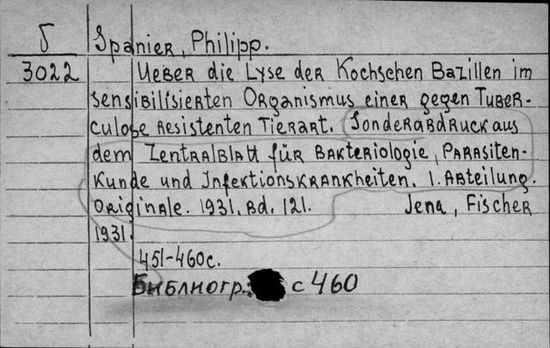 Б Spanier, Philipp.
3022 Ueber die Lyse der Kochschen Bazillen im
sensibilisierten Organismus einer gegen Tuber-
culose resistenten Tierart. Sonderabdruck aus
dem Zentralblatt für Bakteriologie, Parasiten-
kunde und Infektionskrankheiten. 1. Abteilung.
Originale. 1931. Bd. 121. Jena, Fischer
1931.
451-460c.
Библиогр.: с 460